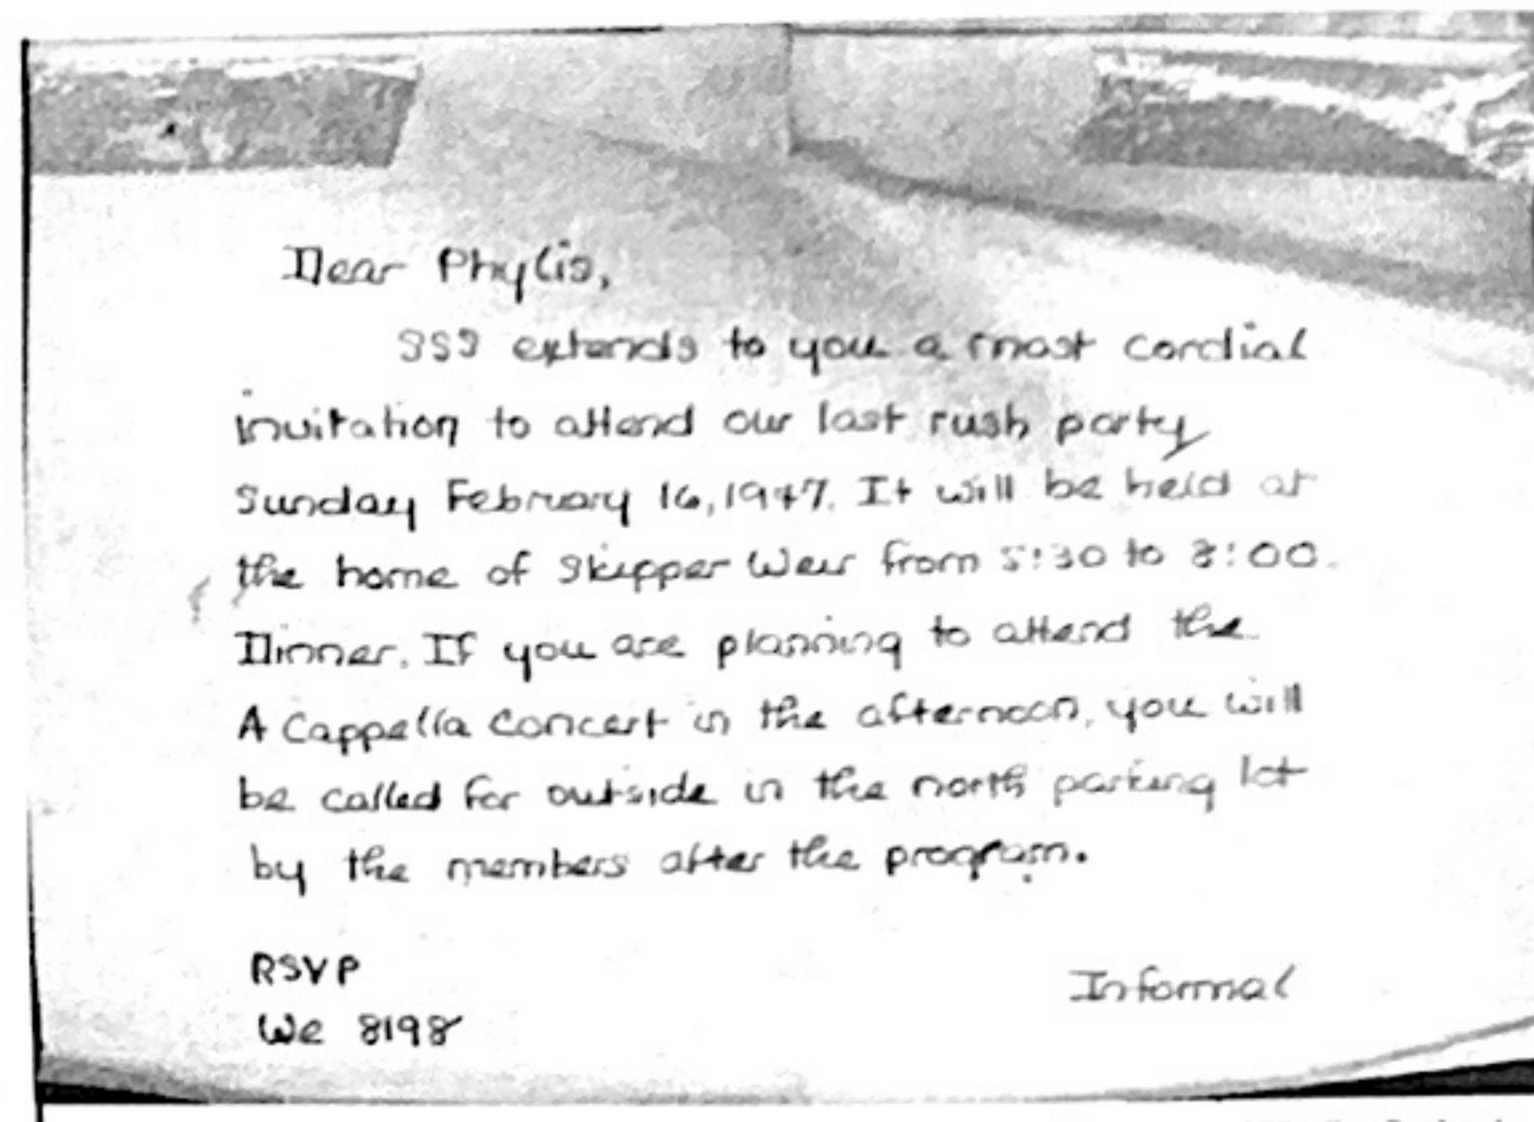 Dear Phylis,
SSS extends to you a most cordial
invitation to attend our last rush party
Sunday February 16, 1947. It will be held at
the home of Skipper Weir from 5:30 to 8:00.
Dinner. If you are planning to attend the
A Cappella Concert in the afternoon, you will
be called for outside in the north parking lot
by the members after the program.
RSVP
Informal
We 8198